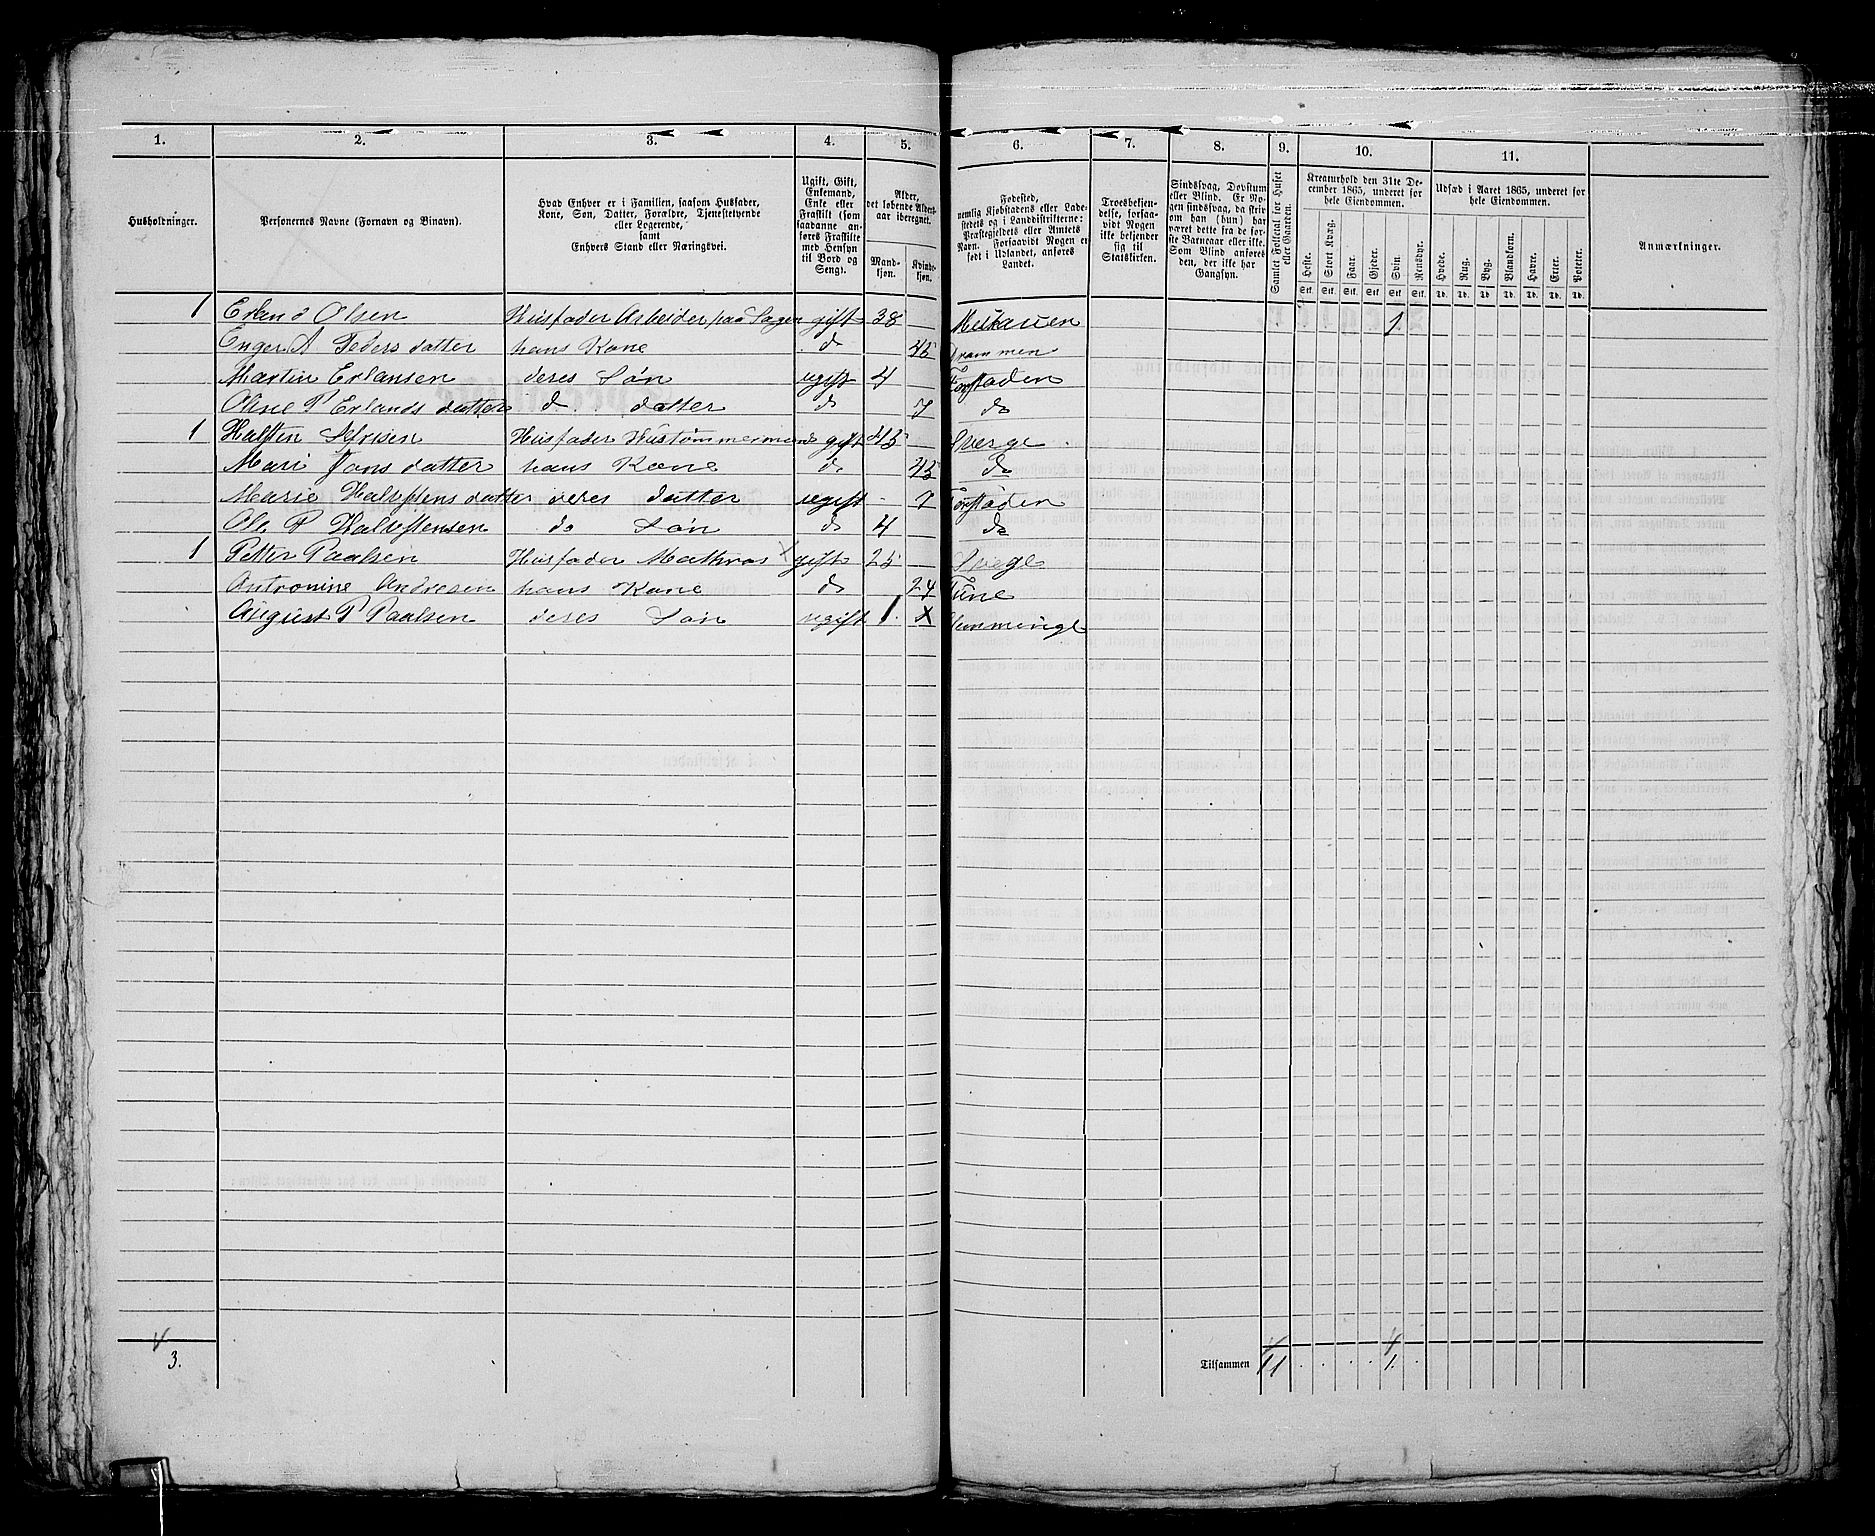 1. 2. 3. 4. 5. 6. 7. 8. 9. 10. 11.
Husholdninger.
Personernes Navne (Fornavn og Binavn).
Hvad Enhver er i Familien, saasom Husfader,
Kone, Søn, Datter, Forældre, Tjenestetyende
eller Logerende,
samt
Enhvers Stand eller Næringsvei.
Ugift, Gift,
Enkemand,
Enke eller
Fraskilt (som
saadanne an-
føres Fraskilte
med Hensyn
til Bord og
Seng).
Alder,
det løbende Alders-
aar iberegnet.
Mand-
kjøn.
Kvinde-
kjøn.
Fødested,
nemlig Kjøbstadens eller Lade-
stedets og i Landdistrikterne:
Præstegjeldets eller Amtets
Navn. Forsaavidt Nogen er
født i Udlandet, anføres
Landet.
Troesbekjen-
delse, forsaa-
vidt Nogen
ikke bekjender
sig til
Statskirken.
Sindssvag, Døvstum
eller Blind. Er No-
gen sindssvag, da skri-
ves om han (hun) har
været dette fra de før-
ste Barneaar eller ikke.
Som Blind anføres
den, der ikke har
Gangsyn.
Samlet Folketal for Huset
eller Gaarden.
Kreaturhold den 31te De-
cember 1865, underet for
hele Eiendommen.
Heste. Stort Kvæg. Faar. Gjeder. Svin. Rensdyr.
Stk. Stk. Stk. Stk. Stk. Stk.
Udsæd i Aaret 1865, underet for
hele Eiendommen.
Hvede. Rug. Byg. Blandkorn. Havre. Erter. Poteter.
Td. Td. Td. Td. Td. Td. Td.
Anmærkninger.
1 Erland Olsen Husfader Arbeider paa Sagen gift 38 1
Enger A Peders datter hans Kone do 45 Drammen
Martin Erlansen deres Søn ugift 4 Forstaden
Oline P Erlands datter do datter do 7 do
1 Halsten Husfader Hustømmermand gift 45 Sverge
Mari Jons datter hans Kone do 45 do
Marie Halvstens datter deres datter ugift 7 Forstaden
Ole P Halvstensen do Søn do 4 do
1 Petter Paalsen Husfader Mathros gift 25 Svege
Antronine Andresen hans Kone do 24 Tune
August P Paalsen deres Søn ugift 1. x Glemminge
3. Tilsammen 11 1.